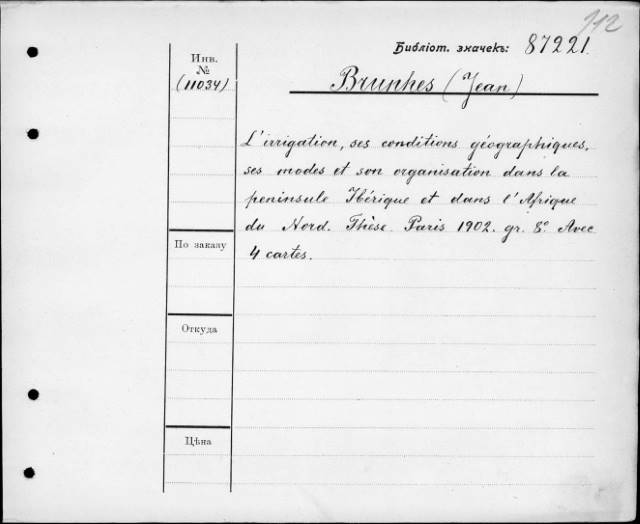 112
Библіот. значекъ: 87221.
Инв.
№
(11034)
Brunhes (Jean)
L'irrigation, ses conditions géographiques,
ses modes et son organisation dans la
peninsule Ibérique et dans l'Afrique
du Nord. Thèse. Paris 1902. gr. 8° Avec
4 cartes.
По заказу
Откуда
Цѣна